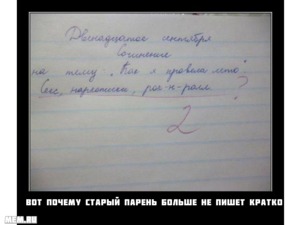 Двенадцатое сентября
Сочинение
на тему: "Как я провела лето".
Секс, наркотики, рок-н-ролл.
?
2
ВОТ ПОЧЕМУ СТАРЫЙ ПАРЕНЬ БОЛЬШЕ НЕ ПИШЕТ КРАТКО